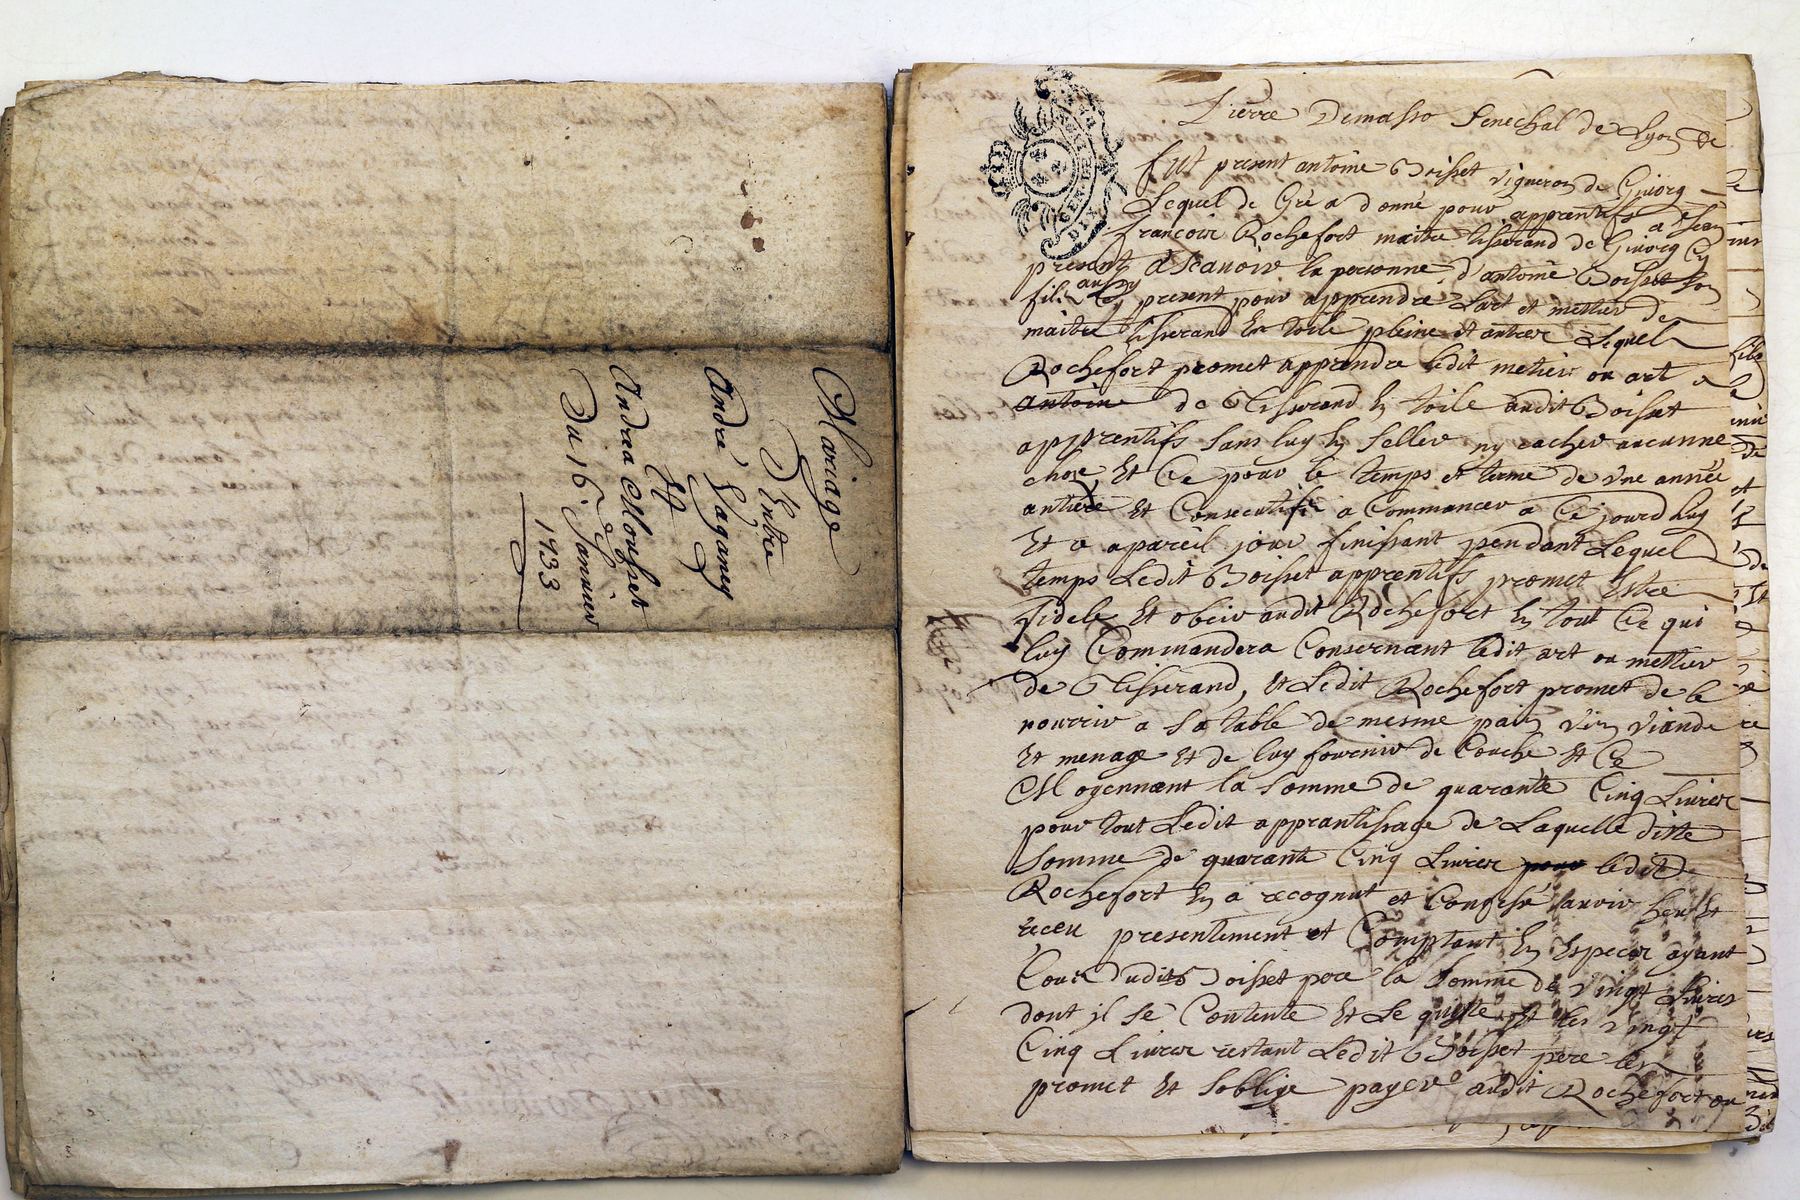 Mariage
D'Entre
André Laganey
Et
Andrea Mousset
Du 16e Janvier
1733
GENERALITE
DIX DEN
Pierre Demasso Senechal de Lyon
fut present antoine Boisset vigneron de Guiorg
Lequel de Gré a donné pour apprentifs a Jean
francois Rochefort maitre tisserand de Guiorg Cy
present aussy
a Scauoir la personne d'antoine Boisset son
fils Cy present pour apprendre Lart et mettier de
maitre tisserand En toile pleine et autres Lequel
Rochefort promet apprendre ledit metier ou art a
antoine de tisserand En toile audit Boisset
apprentifs sans luy En seller ny cacher aucunne
chose Et Ce pour le temps et terme de vne année
antiere Et Consecutifie a Commancer a Ce jourd huy
Et a apareil jour finissant pendant Lequel
temps Ledit Boisset apprentifs promet Estre
fidele Et obeir audit Rochefort En tout Ce qui
luy Commandera Consernant ledit art ou mettier
de tisserand, Et Ledit Rochefort promet de le
nourrir a sa table de mesme pain vin viande
Et menage Et de luy fournir de Couche Et Ce
Moyennant la somme de quarante Cinq Liures
pour tout Ledit apprantissage de Laquelle ditte
somme de quarante Cinq Liures pour ledit
Rochefort En a recognut et Confessé auoir heu Et
receu presentement et Comptant En Especes ayant
Cour dudit Boisset pere la somme de vingt Liures
dont jl se Contente Et Le quitte Et les vingt
Cinq Liures restant Ledit Boisset pere les
promet Et soblige payer audit Rochefort ou